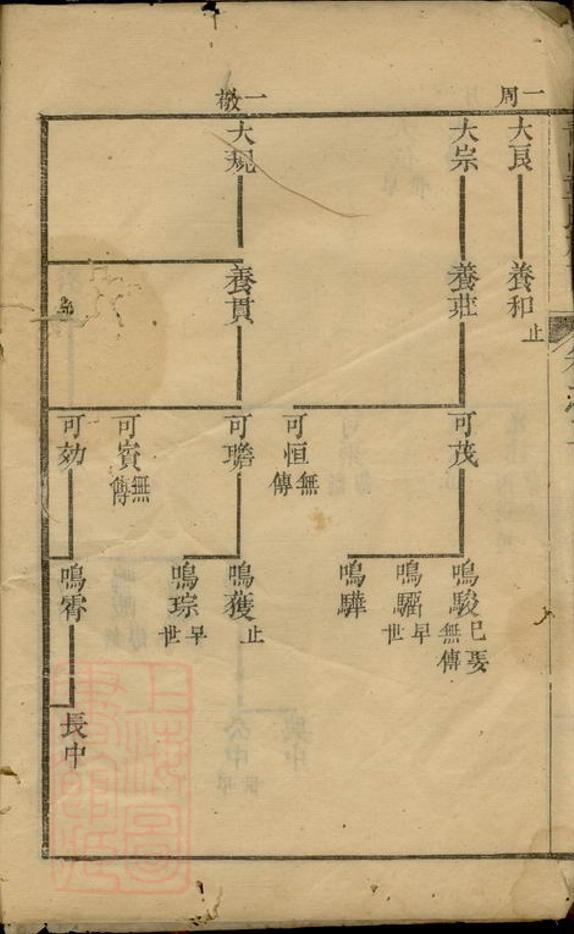 一周
大良
養和
止
大宗
養莊
可茂
鳴駿
已娶
無傳
鳴騮
早世
鳴驊
可恒
無傳
一敬
大規
養貫
可瞻
鳴獲
止
鳴琮
早世
可賓
無傳
可効
鳴霄
長中